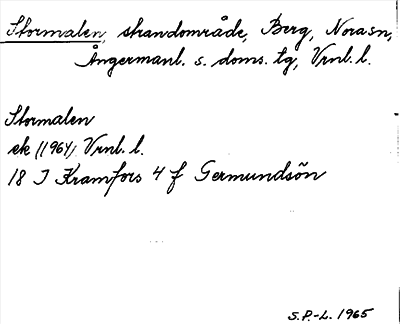 Stormalen, strandområde, Berg, Norasn,
Ångermanl. s. doms. tg, Vrnl. l.
Stormalen
ek (1964) Vrnl. l.
18 I Kramfors 4 f Germundsön
S.P.-L. 1965